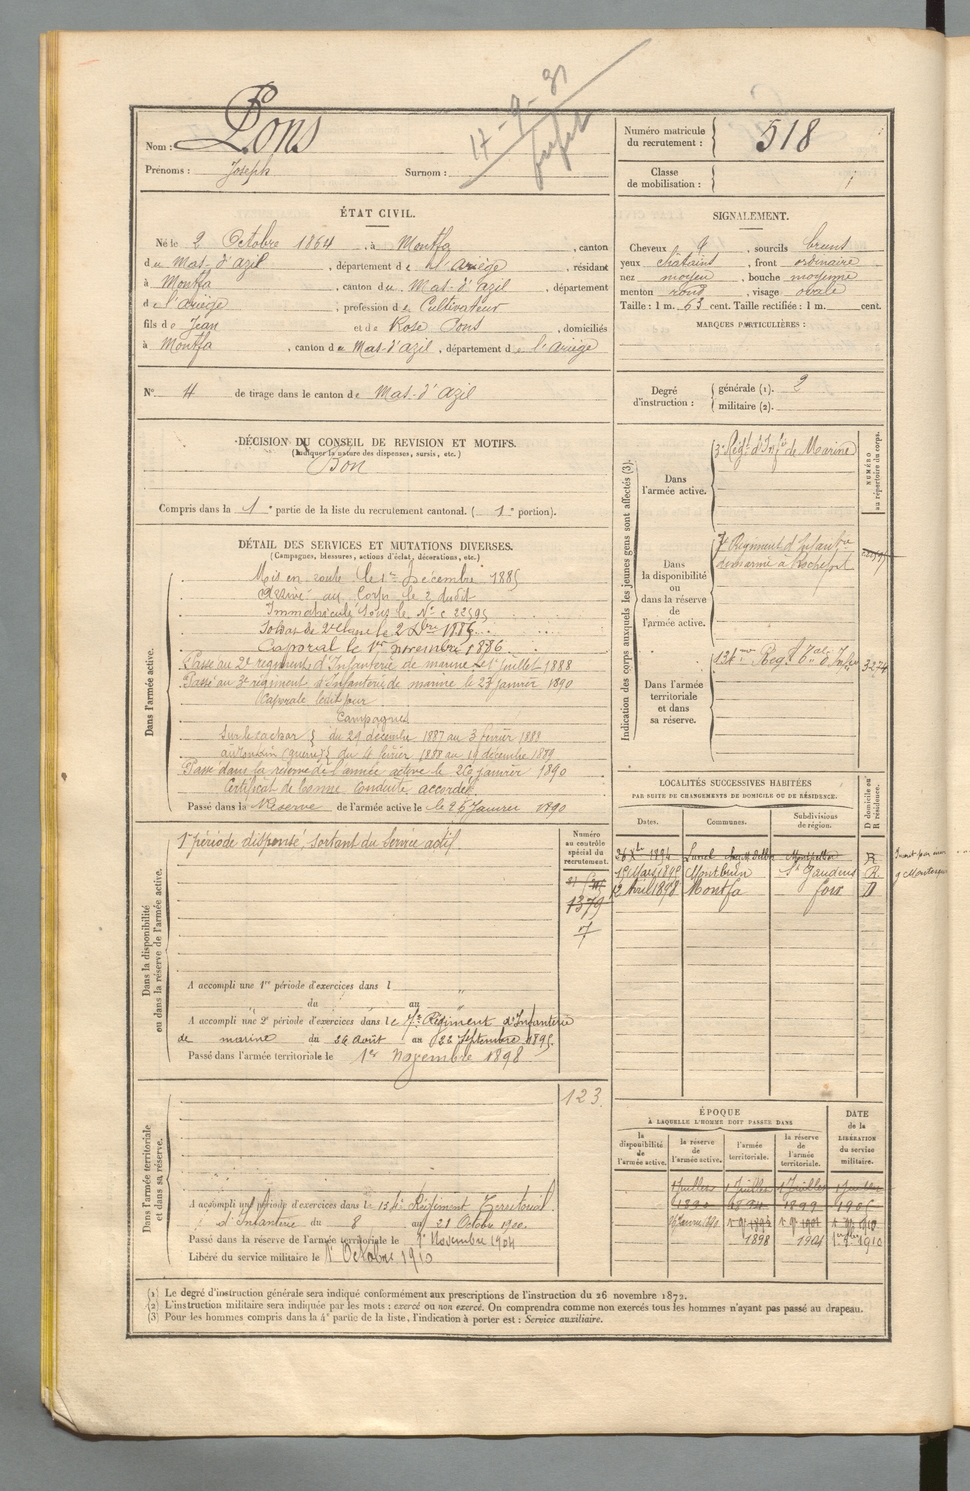 17-9-31
Nom : Pons
Prénoms : Joseph Surnom :
Numéro matricule du recrutement : 518
Classe de mobilisation :
ÉTAT CIVIL.
Né le 2 Octobre 1864, à Montfa, canton
du Mas-d'azil, département de l'Ariège, résidant
à Montfa, canton du Mas-d'azil, département
de l'Ariège, profession de Cultivateur
fils de Jean et de Rose Pons, domiciliés
à Montfa, canton du Mas-d'azil, département de l'Ariège
N° 4 de tirage dans le canton de Mas-d'azil
SIGNALEMENT.
Cheveux, sourcils bruns
yeux châtains, front ordinaire
nez moyen, bouche moyenne
menton rond, visage ovale
Taille : 1 m. 63 cent. Taille rectifiée : 1 m. cent.
MARQUES PARTICULIÈRES :
Degré d'instruction : générale (1). 2
militaire (2).
DÉCISION DU CONSEIL DE REVISION ET MOTIFS.
(Indiquer la nature des dispenses, sursis, etc.)
Bon
Compris dans la 1e partie de la liste du recrutement cantonal. (1e portion).
DÉTAIL DES SERVICES ET MUTATIONS DIVERSES.
(Campagnes, blessures, actions d'éclat, décorations, etc.)
Dans l'armée active.
Mis en route le 1er Décembre 1885
Arrivé au Corps le 2 dudit
Immatriculé sous le N° c 22595
Soldat de 2e classe le 2 Xbre 1885
Caporal le 1er novembre 1886
Passé au 2e régiment d'Infanterie de marine le 1er juillet 1888
Passé au 3e régiment d'Infanterie de marine le 23 janvier 1890
Caporal ledit jour
Campagnes
du 29 décembre 1887 au 3 février 1888
au Tonkin (guerre) du 4 février 1888 au 19 décembre 1889
Passé dans la réserve de l'armée active le 26 janvier 1890
Certificat de bonne conduite accordé.
Passé dans la Réserve de l'armée active le 26 Janvier 1890
Indication des corps auxquels les jeunes gens sont affectés (3).
NUMÉRO au répertoire du corps.
Dans l'armée active.
3e Régt d'Infie de Marine
Dans la disponibilité ou dans la réserve de l'armée active.
7e Régiment d'Infanterie
de marine à Rochefort
Dans l'armée territoriale et dans sa réserve.
134me Regt Tal d'Infie
3274
Dans la disponibilité ou dans la réserve de l'armée active.
1e période dispensé, sortant du Service actif
Numéro au contrôle spécial du recrutement.
1379
A accompli une 1re période d'exercices dans l
du au
A accompli une 2e période d'exercices dans le 7e Régiment d'Infanterie
de marine du 26 Août au 22 Septembre 1895
Passé dans l'armée territoriale le 1er Novembre 1898
LOCALITÉS SUCCESSIVES HABITÉES
PAR SUITE DE CHANGEMENTS DE DOMICILE OU DE RÉSIDENCE.
Dates. Communes. Subdivisions de région. D domicile ou R résidence.
26 Xbre 1894 Lunel Montpellier R
19 Mars 1895 Montbrun St Gaudens R
12 Avril 1898 Montfa foix D
Dans l'armée territoriale et dans sa réserve.
123
A accompli une période d'exercices dans le 134e Régiment Territorial
d'Infanterie du 8 au 21 Octobre 1900.
Passé dans la réserve de l'armée territoriale le 1er Novembre 1904
Libéré du service militaire le 1er Octobre 1910
ÉPOQUE
À LAQUELLE L'HOMME DOIT PASSER DANS
DATE de la LIBÉRATION du service militaire.
la disponibilité de l'armée active. la réserve de l'armée active. l'armée territoriale. la réserve de l'armée territoriale.
1 Juillet 1 Juillet 1 Juillet 1 Juillet
1890 1894 1899 1905
1898 1904 1910
(1) Le degré d'instruction générale sera indiqué conformément aux prescriptions de l'instruction du 26 novembre 1872.
(2) L'instruction militaire sera indiquée par les mots : exercé ou non exercé. On comprendra comme non exercés tous les hommes n'ayant pas passé au drapeau.
(3) Pour les hommes compris dans la 4e partie de la liste, l'indication à porter est : Service auxiliaire.